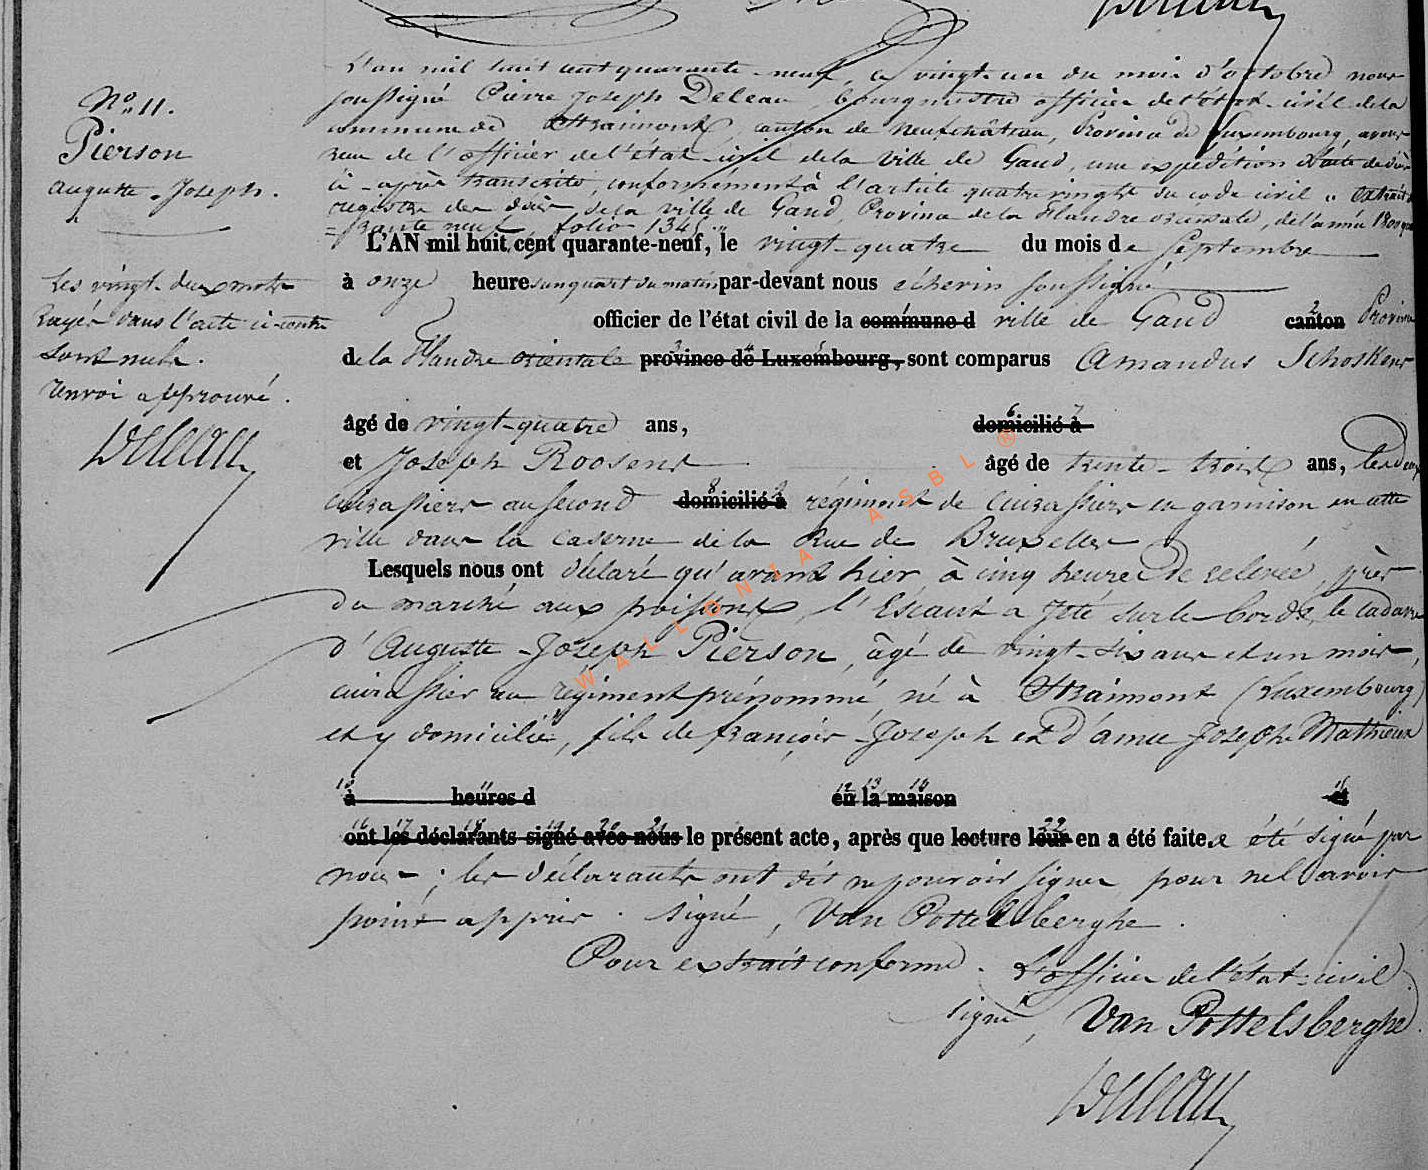 N° 11.
Pierson
Auguste-Joseph.
Les vingt-deux mots
rayés dans l'acte ci-contre
sont nuls.
renvoi approuvé.
Deleau
L'an mil huit cent quarante-neuf, le vingt-un du mois d'octobre nous
soussigné Pierre Joseph Deleau, bourgmestre officier de l'état-civil de la
commune de Straimont, canton de Neufchâteau, Province de Luxembourg, avons
reçu de l'officier de l'état-civil de la ville de Gand, une expédition d'acte de décès
ci-après transcrite, conformément à l'article quatre vingts du code civil « Extrait
registre des décès de la ville de Gand, Province de la Flandre orientale, de l'année 1800 qua
=rante neuf, folio 134
L'AN mil huit cent quarante-neuf, le vingt-quatre du mois de Septembre
à onze heures un quart du matin par-devant nous échevin soussigné
officier de l'état civil de la commune d ville de Gand canton Province
de la Flandre orientale province de Luxembourg, sont comparus Amandus Schoskens
âgé de vingt-quatre ans, domicilié à
et Joseph Roosens âgé de trente-trois ans, les deux
cuirassiers au second domicilié à régiment de cuirassiers en garnison en cette
ville dans la caserne de la Rue de Bruxelles
Lesquels nous ont déclaré qu'avant hier, à cinq heures de relevée, près
du marché aux poissons, l'Escaut a jeté sur le bord, le cadavre
d'Auguste-Joseph Pierson, âgé de vingt-six ans et un mois,
cuirassier au régiment prénommé, né à Straimont (Luxembourg)
et y domicilié, fils de françois-Joseph et d'anne Joseph Mathieux
à heures d en la maison et
ont les déclarants signé avec nous le présent acte, après que lecture leur en a été faite. a été signé par
nous ; les déclarants ont dit ne pouvoir signer pour ne l'avoir
point appris. signé, Van Pottelsberghe.
Pour extrait conforme. L'officier de l'état-civil
signé, Van Pottelsberghe.
Deleau
WALLONIA ASBL ®